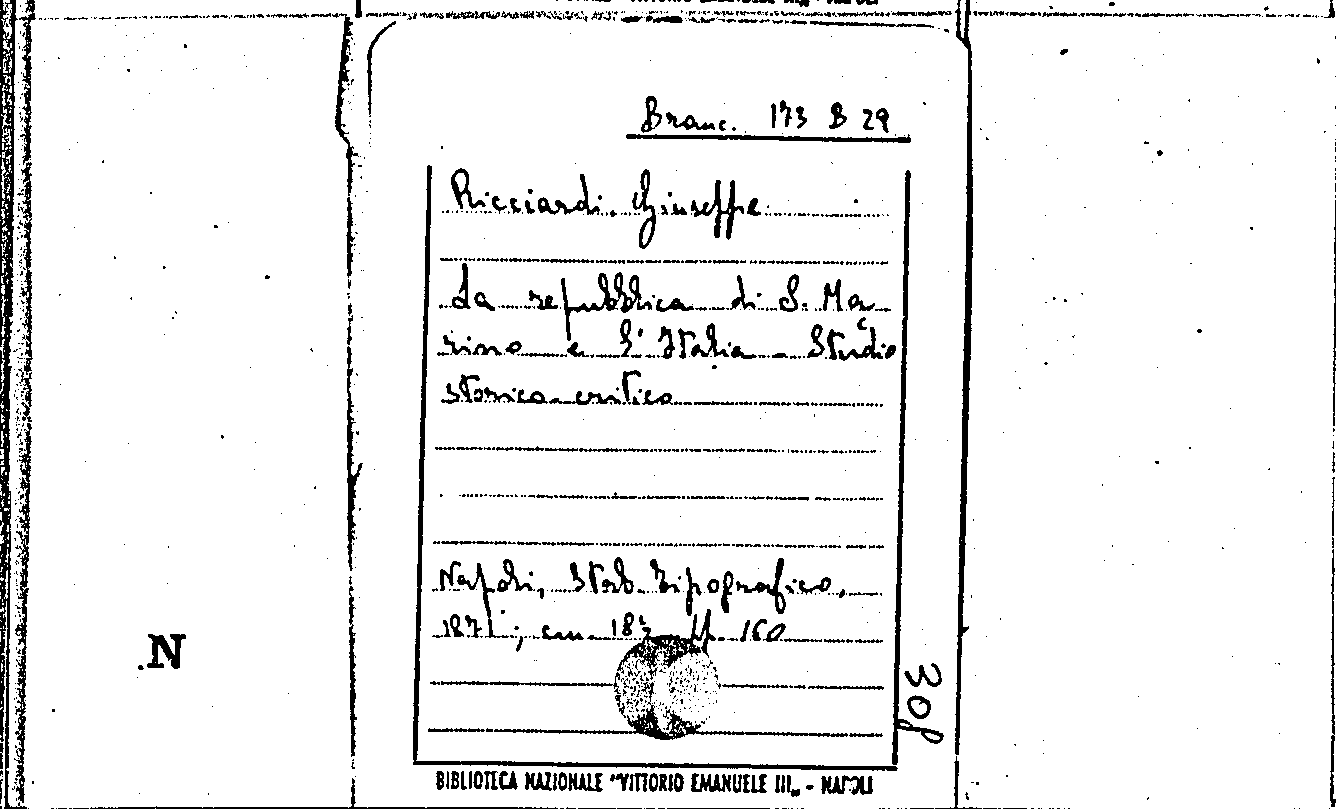 Branc. 173 B 29
Ricciardi Giuseppe
La repubblica di S. Ma
rino e l'Italia - Studio
storico-critico
Napoli, Stab. Tipografico,
1871; cm. 18½ pp. 160
308
N
BIBLIOTECA NAZIONALE "VITTORIO EMANUELE III„ - NAPOLI